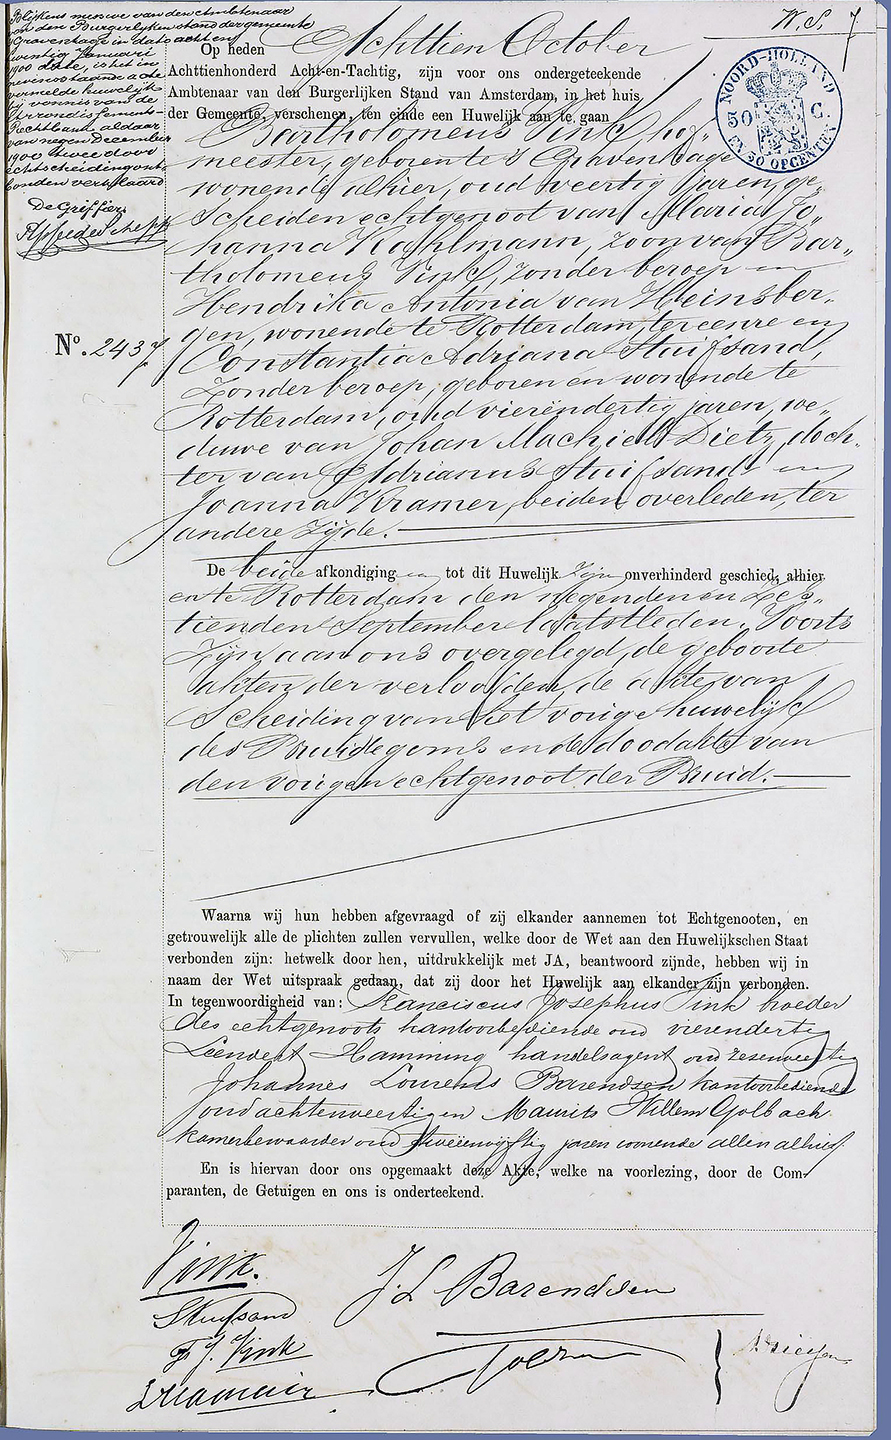 Blijkens missive van den Ambtenaar
van den Burgerlijken stand der gemeente
's Gravenhage in dato acht en
twintig Januari
1901 is het in
nevenstaande acte
vermelde huwelijk
bij vonnis van de
Arrondissements-
Rechtbank aldaar
van negen December
1900 twee door
echtscheiding ont-
bonden verklaard
De Griffier
W. S. 7
NOORD-HOLLAND
50 C.
EN 50 OPCENTEN
Op heden Achttien October
Achttienhonderd Acht-en-Tachtig, zijn voor ons ondergeteekende
Ambtenaar van den Burgerlijken Stand van Amsterdam, in het huis
der Gemeente, verschenen, ten einde een Huwelijk aan te gaan
Bartholomeus Vink, hof-
meester, geboren te 's Gravenhage
wonende alhier, oud veertig jaren, ge-
scheiden echtgenoot van Maria Jo-
hanna Kahlmann, zoon van Bar-
tholomeus Vink, zonder beroep en
Hendrika Antonia van Heinsber-
gen, wonende te Rotterdam, ter eenre en
No. 2437
Constantia Adriana Stuifsand,
zonder beroep, geboren en wonende te
Rotterdam, oud vierendertig jaren, we-
duwe van Johan Machiell Dietz, doch-
ter van Adrianus Stuifsand en
Joanna Kramer, beiden overleden, ter
andere zijde.
De beide afkondigingen tot dit Huwelijk zijn onverhinderd geschied, alhier
en te Rotterdam den negenden en zes-
tienden September laatstleden. Voorts
zijn aan ons overgelegd, de geboorte
akten der verloofden, de akte van
scheiding van het vorige huwelijk
des Bruidegoms en de doodakte van
den vorigen echtgenoot der Bruid.
Waarna wij hun hebben afgevraagd of zij elkander aannemen tot Echtgenooten, en
getrouwelijk alle de plichten zullen vervullen, welke door de Wet aan den Huwelijkschen Staat
verbonden zijn: hetwelk door hen, uitdrukkelijk met JA, beantwoord zijnde, hebben wij in
naam der Wet uitspraak gedaan, dat zij door het Huwelijk aan elkander zijn verbonden.
In tegenwoordigheid van: Franciscus Josephus Vink broeder
des echtgenoots kantoorbediende oud vierendertig
Leendert Hamming handelsagent oud zesenveertig
Johannes Lourens Barendsen kantoorbediende
oud achtenveertig en Maurits Willem Golbach
kamerbewaarder oud tweeenvijftig jaren wonende allen alhier.
En is hiervan door ons opgemaakt deze Akte, welke na voorlezing, door de Com-
paranten, de Getuigen en ons is onderteekend.
Vink.
J. L. Barendsen
Stuifsand
F. J. Vink